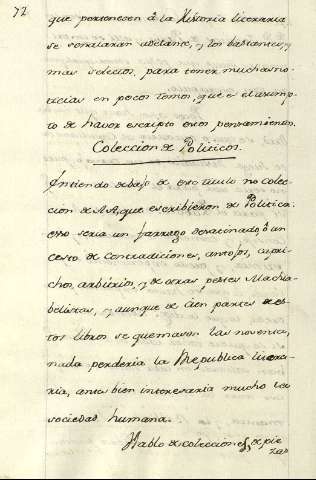 72
que pertenecen â la Historia literaria
se señalaran adelante, y los bastantes, y
mas selectos, para tener muchas no-
ticias en pocos tomos, que es el assump-
to de haver escripto esos pensamientos.
Coleccion de Politicos.
Entiendo debajo de este titulo no colec-
cion de AA. que escribieron de Politica.
esso seria un farrago desatinado, ô un
cesto de contradiciones, antojos, capri-
chos, arbitrios, y de otras pestes Machia-
belisticas, y aunque de cien partes de es-
tos libros se quemasen las noventa,
nada perderia la Republica litera-
ria, antes bien interesaria mucho la
sociedad humana.
Hablo de coleccion de pie
zas